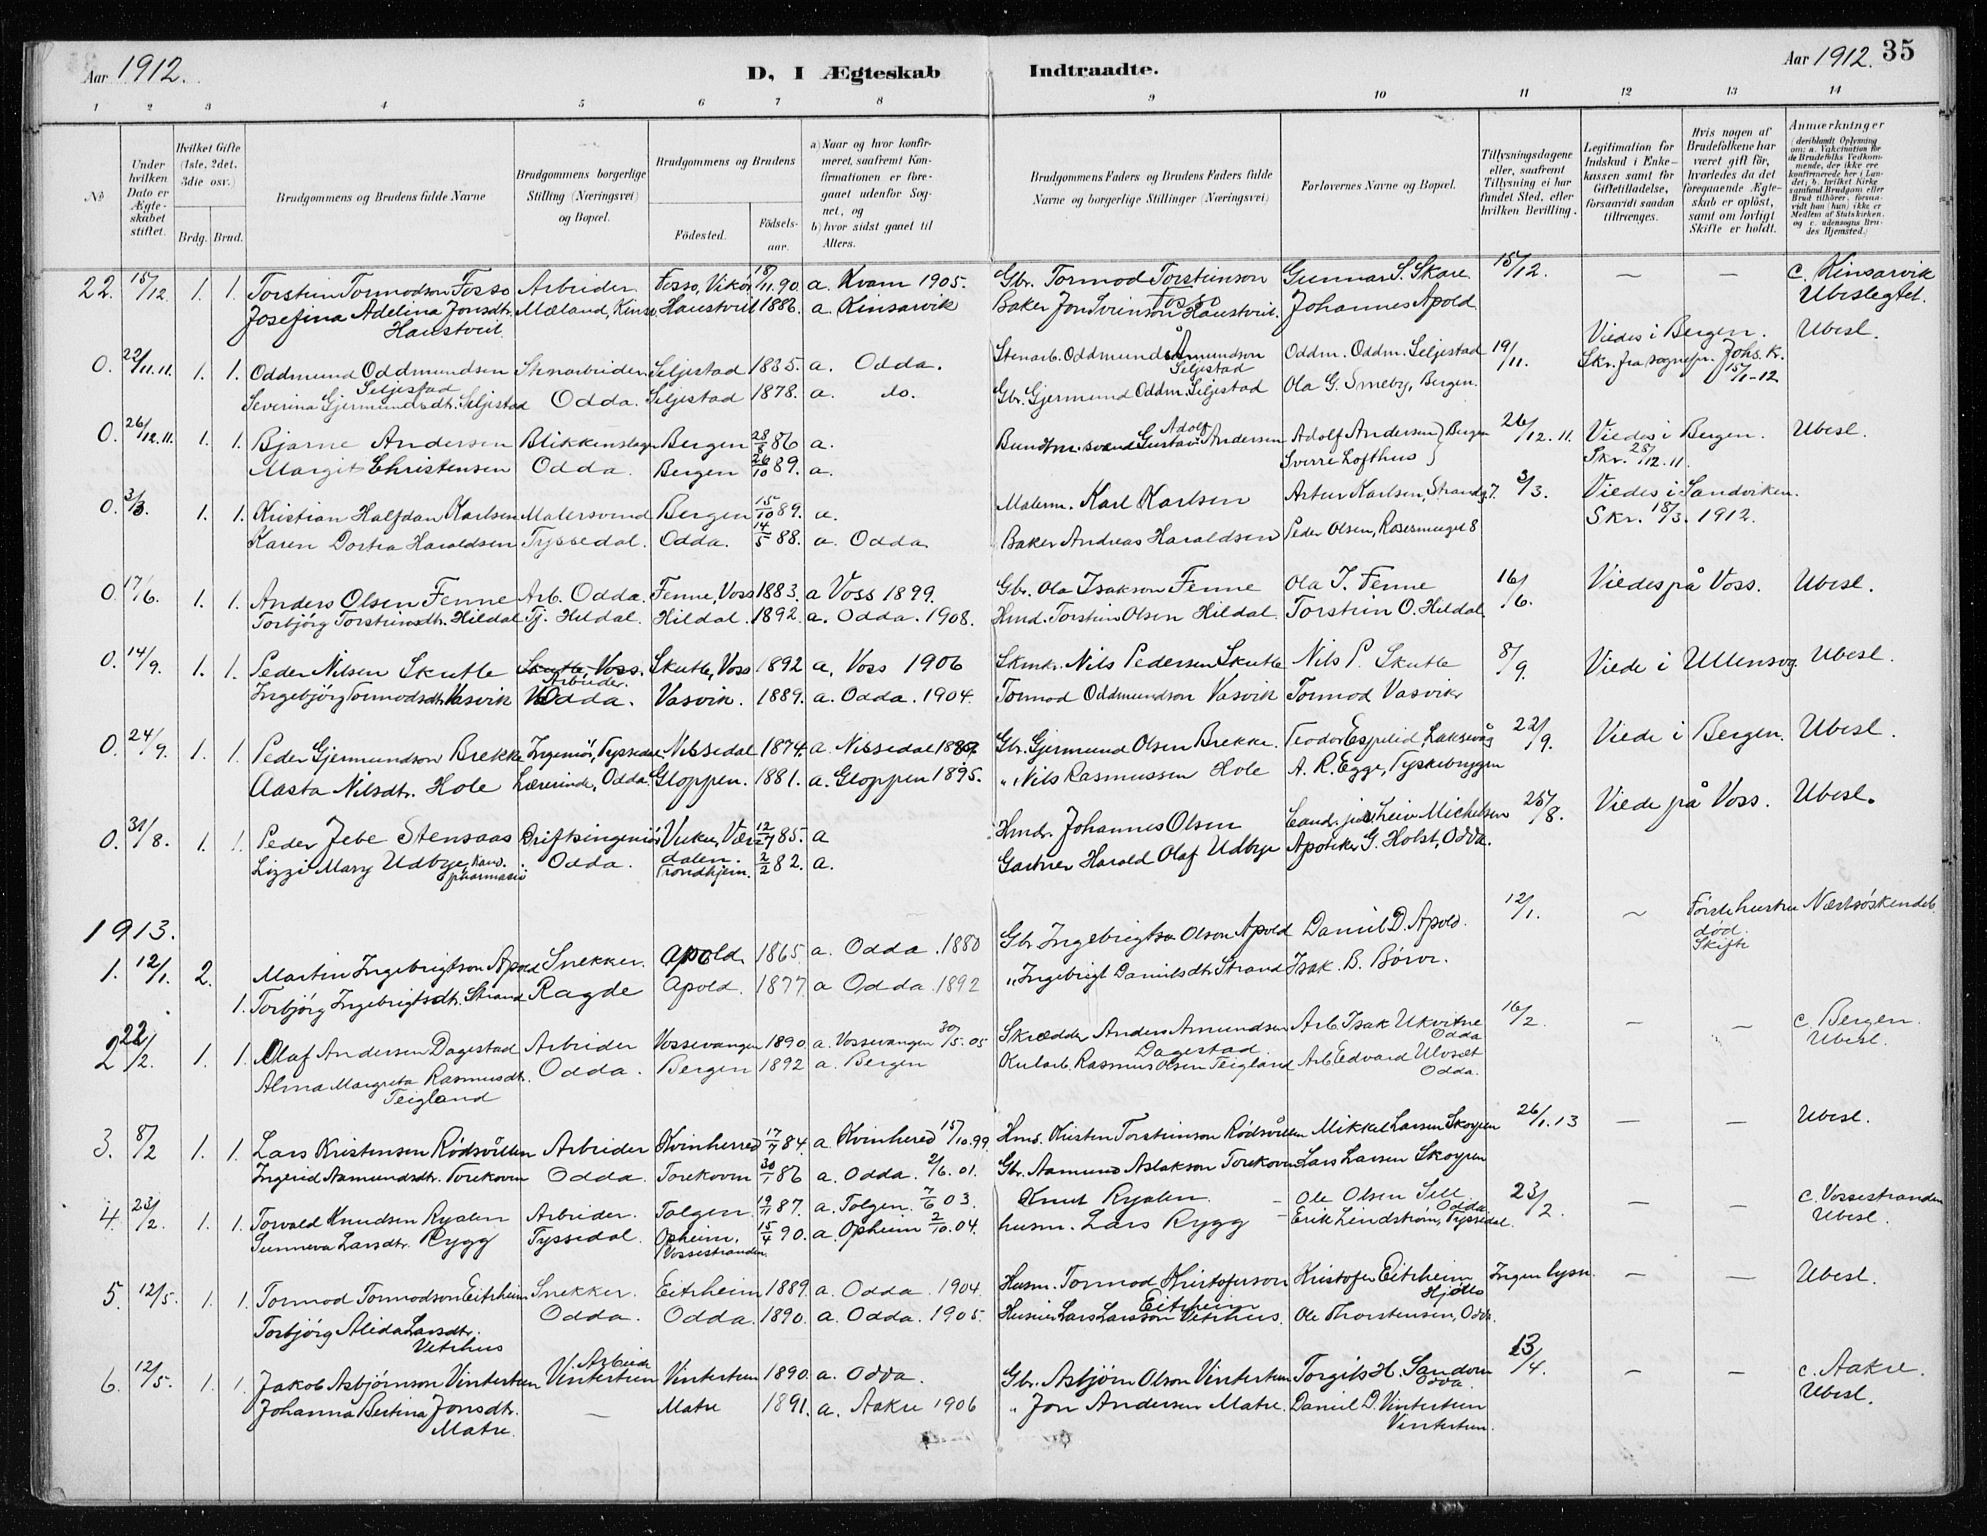 Aar 1912.
D, I Ægteskab Indtraadte.
Aar 1912. 35
1 2 3 4 5 6 7 8 9 10 11 12 13 14
No
Under hvilken Dato er Ægteskabet stiftet.
Hvilket Gifte (1ste, 2det, 3die osv.)
Brdg. Brud.
Brudgommens og Brudens fulde Navne
Brudgommens borgerlige Stilling (Næringsvei) og Bopæl.
Brudgommens og Brudens
Fødested. Fødselsaar.
a) Naar og hvor konfirmeret, saafremt Konfirmationen er foregaaet udenfor Sognet, og
b) hvor sidst gaaet til Alters.
Brudgommens Faders og Brudens Faders fulde Navne og borgerlige Stillinger (Næringsvei)
Forlovernes Navne og Bopæl.
Tillysningsdagene eller, saafremt Tillysning ei har fundet Sted, efter hvilken Bevilling.
Legitimation for Indskud i Enkekassen samt for Giftetilladelse, forsaavidt saadan tiltrænges.
Hvis nogen af Brudefolkene har været gift før, hvorledes da det foregaaende Ægteskab er opløst, samt om lovligt Skifte er holdt.
Anmærkninger (deriblandt Oplysning om: a. Vakcination for de Brudefolks Vedkommende, der ikke ere konfirmerede her i Landet; b. hvilket Kirkesamfund Brudgom eller Brud tilhører, forsaavidt han (hun) ikke er Medlem af Statskirken, og c. udensogns Brudes Hjemsted.)
22. 15/12. 1. 1. Torstein Tormodson Fosso Arbeider Fosso, Vikør 18/11.90 a. Kvam 1905. Gbr. Tormod Torsteinson Fosso Gunnar S. Skare 15/12. — — c. Kinsarvik
Josefina Adelina Jonsdtr. Haustveit Mæland, Kinso. Haustveit 1886. a. Kinsarvik Baker Jon Sveinson Haustveit. Johannes Apold Ubeslegtet.
0. 22/11.11. 1. 1. Oddmund Oddmundsen Seljestad Stenarbeider Seljestad 1885. a. Odda. Stenarb. Oddmund Åmundson Seljestad Oddm. Oddm. Seljestad 19/11. Viedes i Bergen. Ubesl.
Severina Gjermundsdtr. Seljestad Odda. Seljestad 1878. a. do. Gbr. Gjermund Oddm. Seljestad Ola G. Smeby, Bergen. Skr. fra sognepr. Johs. k. 15/1-12
0. 26/12.11. 1. 1. Bjarne Andersen Blikkenslager Bergen 28/8 86 a. Bundtm. svend Gustav Adolf Andersen Adolf Andersen } Bergen 26/12.11. Viedes i Bergen. Ubesl.
Margit Christensen Odda. Bergen 26/10 89. a. Sverre Lofthus } Skr. 28/12.11.
0. 3/3. 1. 1. Kristian Halfdan Karlsen Malersvend Bergen 15/10 89. a. Malerm. Karl Karlsen Artur Karlsen, Strandg 7. 3/3. Viedes i Sandviken.
Karen Dortea Haraldsen Tyssedal. Odda. 14/5 88. a. Odda Baker Andreas Haraldsen Peder Olsen, Rosesmuget 8 Skr. 18/3. 1912.
0. 17/6. 1. 1. Anders Olsen Fenne Arb. Odda. Fenne, Voss 1883. a Voss 1899. Gbr. Ola Isakson Fenne Ola I. Fenne 16/6. Viedes på Voss. Ubesl.
Torbjörg Torsteinsdtr. Hildal Tj. Hildal. Hildal. 1892. a. Odda. 1908. Hmd. Torstein Olsen Hildal. Torstein O. Hildal
0. 14/9. 1. 1. Peder Nilsen Skutle Skutle, Voss. Arbeider. Skutle, Voss 1892 a. Voss 1906 Skmkr. Nils Pedersen Skutle Nils P. Skutle 8/9. Viede i Ullensvg. Ubesl.
Ingebjörg Tormodsdtr. Vasvik Odda. Vasvik. 1889. a. Odda. 1904. Tormod Oddmundson Vasvik Tormod Vasvik
0. 24/9. 1. 1. Peder Gjermundson Brekke Ingeniör, Tyssedal. Nissedal 1874. a. Nissedal 1889. Gbr. Gjermund Olsen Brekke. Teodor Espelid, Laksevåg 22/9. Viede i Bergen. Ubesl.
Aasta Nilsdtr. Hole Lærerinde, Odda. Gloppen. 1881. a. Gloppen 1895. " Nils Rasmussen Hole A. R. Egge, Tyskebryggen
0. 31/8. 1. 1. Peder Jebe Stensaas Driftsingeniör Vuku, Værdalen. 12/7 85. a Hmdr. Johannes Olsen Cand. jur. Leiv Michelsen 25/8. Viede på Voss. Ubesl.
Lizzi Mary Udbye, kand. pharmacii Odda. Trondhjem. 2/2 82. a. Gartner Harald Olaf Udbye Apoteker G. Holst, Odda.
1913.
1. 12/1. 2. Martin Ingebrigtson Apold Snekker. Apold. 1865. a. Odda. 1880 Gbr. Ingebrigt Olson Apold Daniel D. Apold. 12/1. — Förste hustru død. Skifte Næstsöskendeb.
1. Torbjörg Ingebrigtsdtr. Strand Ragde Apold. 1877 a Odda. 1892 " Ingebrigt Danielsdtr. Strand Isak. B. Børve.
2 22/2. 1. 1. Olaf Andersen Dagestad Arbeider Vossevangen 1890. a. Vossevangen 30/5.05 Skrædder Anders Amundsen Dagestad Arb. Isak Ukvitne Odda 16/2. — — c. Bergen.
Alma Margreta Rasmusdtr. Teigland Odda. Bergen 1892 a. Bergen Kularb. Rasmus Olsen Teigland Arb. Edvard Ulvset Odda. Ubesl.
3. 8/2 1. 1. Lars Kristensen Rödsvållen Arbeider Kvinherred 17/7 84. a. Kvinhered 15/10.99. Hms. Kristen Torsteinson Rödsvållen Mikkel Larsen Skoypen 26/1.13 — — Ubesl.
Ingerid Aamundsdtr. Torekoven Odda. Torekoven 30/1 86 a. Odda. 2/6. 01. Gbr. Aamund Aslakson Torekoven Lars Larsen Skoypen
4. 23/2. 1. 1. Torvald Knudsen Ryalen Arbeider. Tolgen. 19/11 87. a. Tolgen. 7/6 03. Knut Ryalen. – Ole Olsen Sell Odda. 23/2. — — c. Vossestranden
Sunneva Larsdtr. Rygg Tyssedal. Opheim, Vossestranden. 15/4 90. a. Opheim 2/10.04. husm. Lars Rygg – Erik Lindström, Tyssedal. Ubesl.
5. 12/5. 1. 1. Tormod Tormodson Eitrheim Snekker. Eitrheim 1889. a. Odda. 1904. Husm. Tormod Kristoferson Eitrheim Kristofer Eitrheim Hjöllo Ingen lysn. — — Ubesl.
Torbjörg Alida Larsdtr. Vetrhus Odda. Odda. 1890. a. Odda. 1905. Husmer Lars Larsson Vetrhus. Ole Thorstensen, Odda.
6. 12/5. 1. 1. Jakob Asbjørnson Vintertun Arbeidr Vintertun Vintertun 1890. a. Odda. Gbr. Asbjörn Olson Vintertun Torgils H. Sandven Odda. 13/4. — — c. Aakre.
Johanna Bertina Jonsdtr. Matre. — Matre 1891. a. Aakre 1906 " Jon Andersen Matre. Daniel D. Vintertun Vintertun. Ubesl.